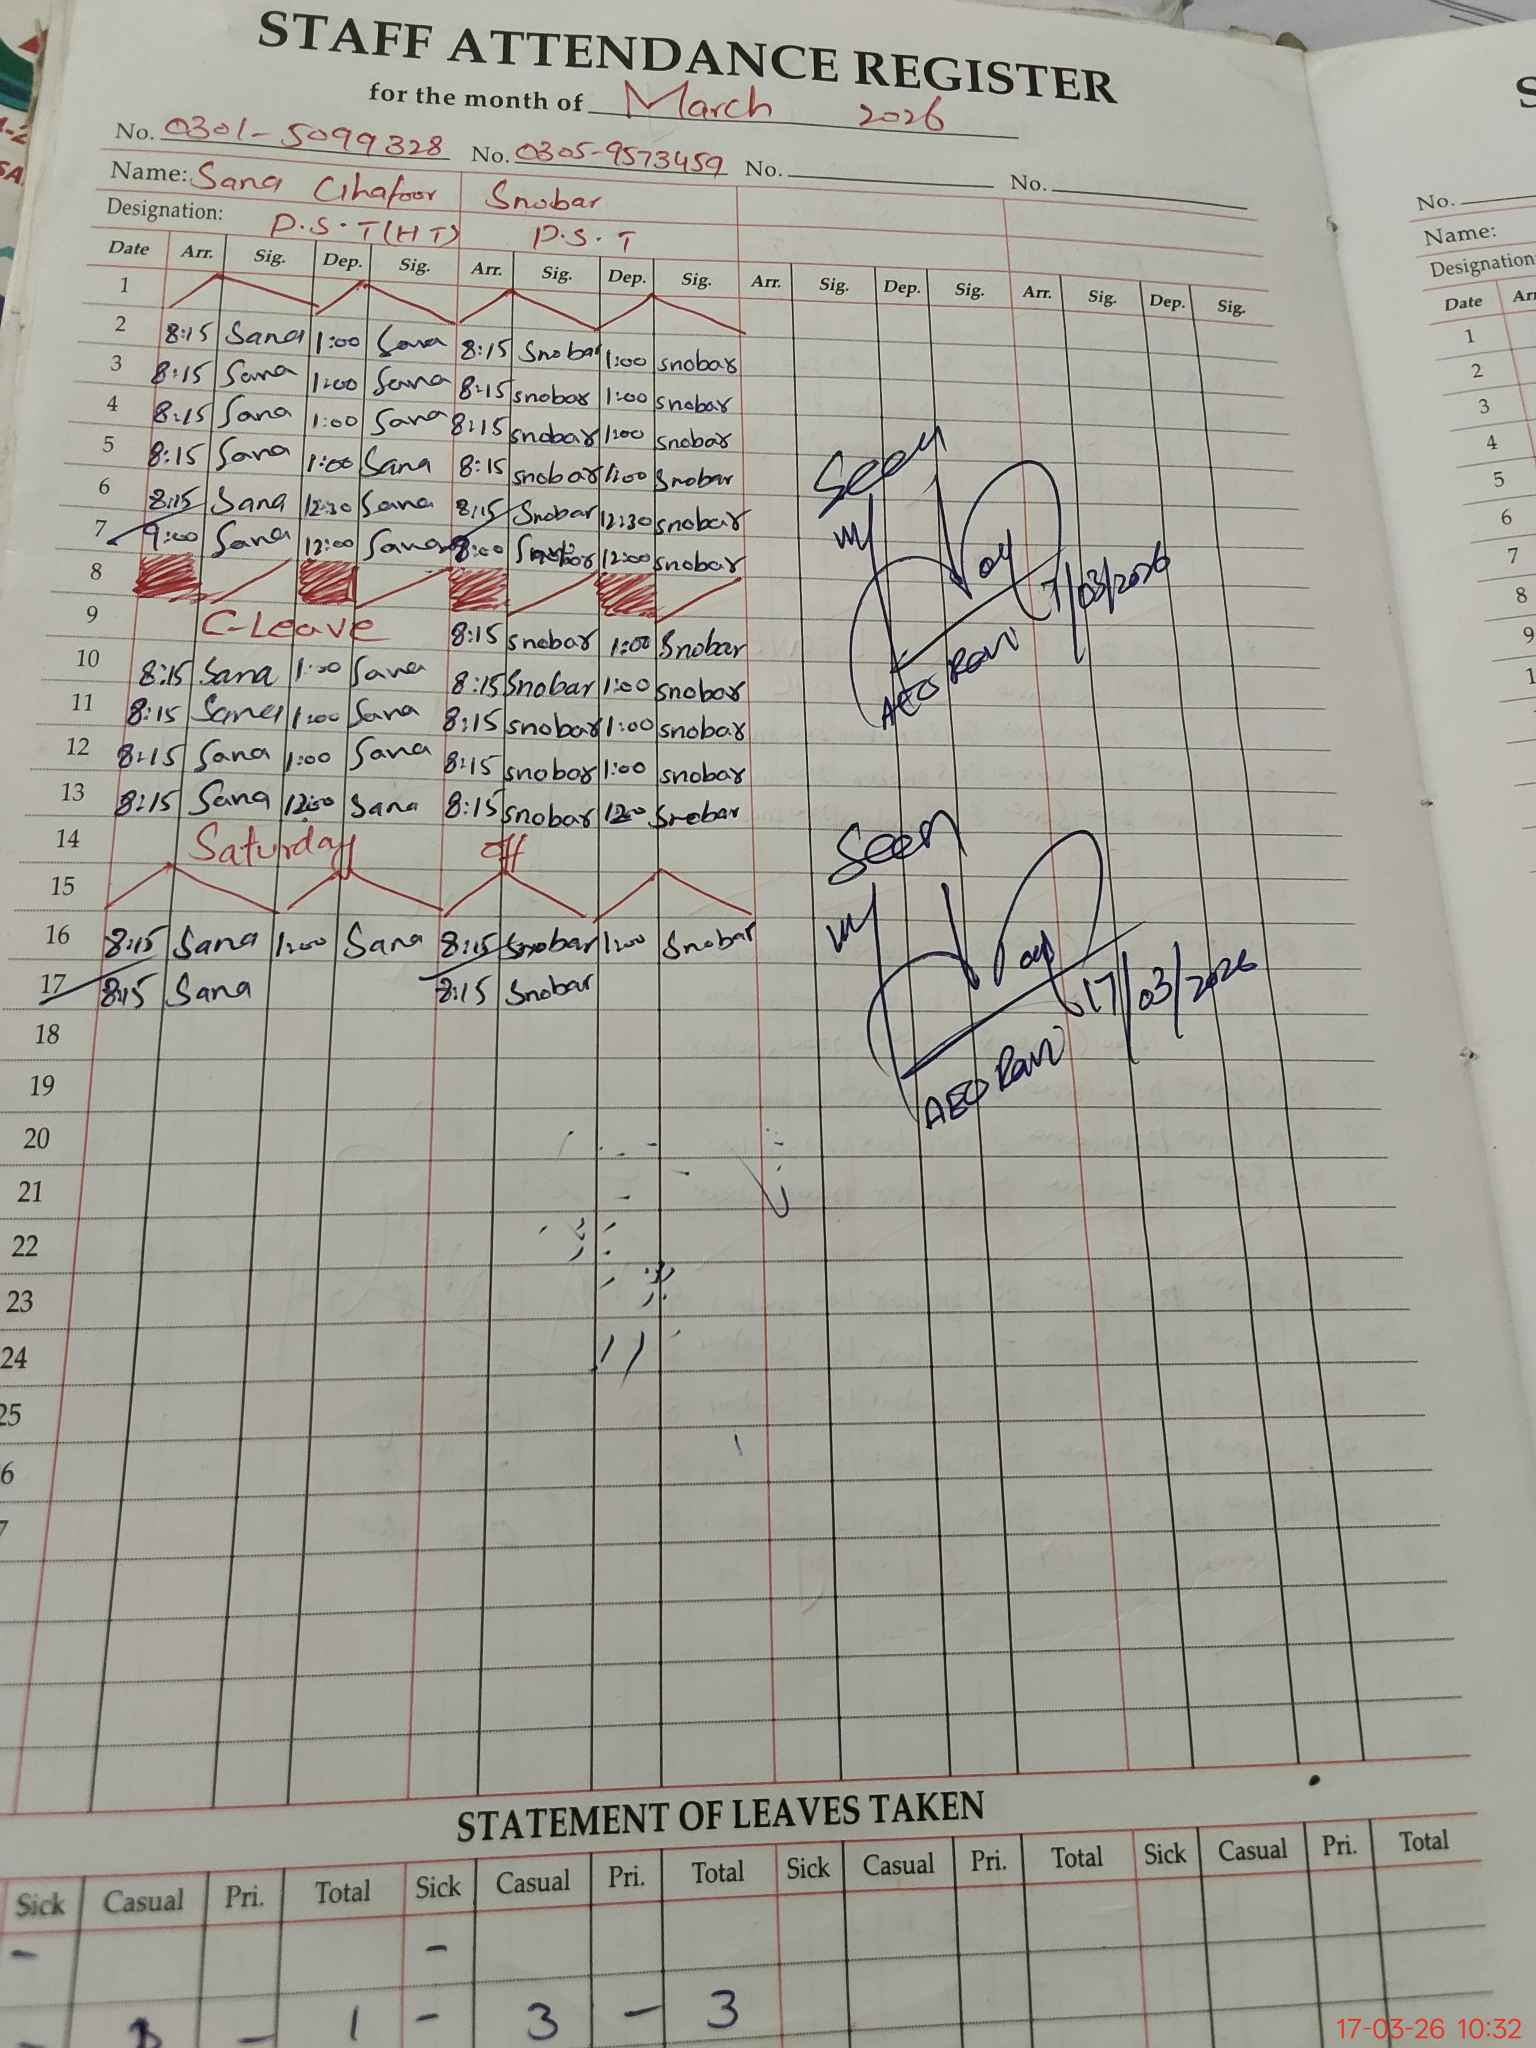 STAFF ATTENDANCE REGISTER
for the month of March 2026
No. 0301-5099328 No. 0305-9573459 No. No.
Name: Sana Ghafoor Snobar
Designation: P.S.T(HT) P.S.T
Date Arr. Sig. Dep. Sig. Arr. Sig. Dep. Sig. Arr. Sig. Dep. Sig. Arr. Sig. Dep. Sig.
1
2 8:15 Sana 1:00 Sana 8:15 Snobar 1:00 snobar
3 8:15 Sana 1:00 Sana 8:15 snobar 1:00 snobar
4 8:15 Sana 1:00 Sana 8:15 snobar 1:00 snobar
5 8:15 Sana 1:00 Sana 8:15 snobar 1:00 Snobar
6 8:15 Sana 12:30 Sana 8:15 Snobar 12:30 snobar
7 9:00 Sana 12:00 Sana 8:00 12:00 snobar
8
9 C-Leave 8:15 snobar 1:00 Snobar
10 8:15 Sana 1:00 Sana 8:15 Snobar 1:00 snobar
11 8:15 Sana 1:00 Sana 8:15 snobar 1:00 snobar
12 8:15 Sana 1:00 Sana 8:15 snobar 1:00 snobar
13 8:15 Sana 12:00 Sana 8:15 snobar 1200 Snobar
14 Saturday off
15
16 8:15 Sana 1:00 Sana 8:15 Snobar 1:00 Snobar
17 8:15 Sana 8:15 Snobar
18
19
20
21
22
23
24
25
6
7
Seen
7/03/2026
AEO
Seen
17/03/2026
AEO
STATEMENT OF LEAVES TAKEN
Sick Casual Pri. Total Sick Casual Pri. Total Sick Casual Pri. Total Sick Casual Pri. Total
- -
- - 1 - 3 - 3
S
No.
Name:
Designation
Date Arr
1
2
3
4
5
6
7
8
9
1
17-03-26 10:32